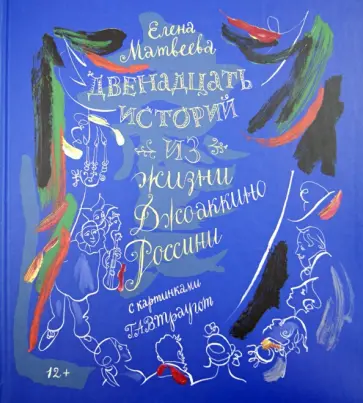 Елена
Матвеева
ДВЕНАДЦАТЬ
ИСТОРИЙ
ИЗ
жизни
Джоаккино
Россини
с картинками
Г.А.В. Траугот
12+